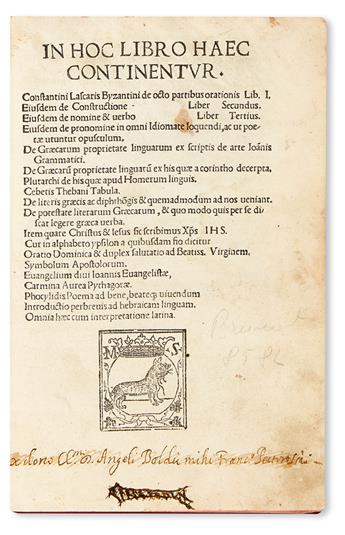 IN HOC LIBRO HAEC
CONTINENTVR.
Constantini Lascaris Byzantini de octo partibus orationis Lib. I.
Eiusdem de Constructione Liber Secundus.
Eiusdem de nomine & uerbo Liber Tertius.
Eiusdem de pronomine in omni Idiomate loquendi, ac ut poe-
tæ utuntur opusculum.
De Græcarum proprietate linguarum ex scriptis de arte Ioānis
Grammatici.
De Græcarū proprietate linguarū ex his quæ a corintho decerpta,
Plutarchi de his quæ apud Homerum linguis.
Cebetis Thebani Tabula.
De literis græcis ac diphthōgis & quemadmodum ad nos ueniant.
De potestate literarum Græcarum, & quo modo quis per se di-
scat legere græca uerba.
Item quare Christus & Iesus sic scribimus Xp̄s IHS.
Cur in alphabeto ypsilon a quibusdam fio dicitur
Oratio Dominica & duplex salutatio ad Beatiss. Virginem,
Symbolum Apostolorum.
Euangelium diui Ioannis Euangelistæ,
Carmina Aurea Pythagoræ.
Phocylidis Poema ad bene, beateq; uiuendum
Introductio perbreuis ad hebraicam linguam.
Omnia hæc cum interpretatione latina.
M S
Angeli Boldù mihi